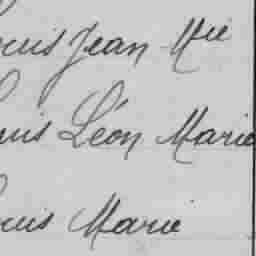 ouis Jean Mie
ouis Léon Marie
ouis Marie